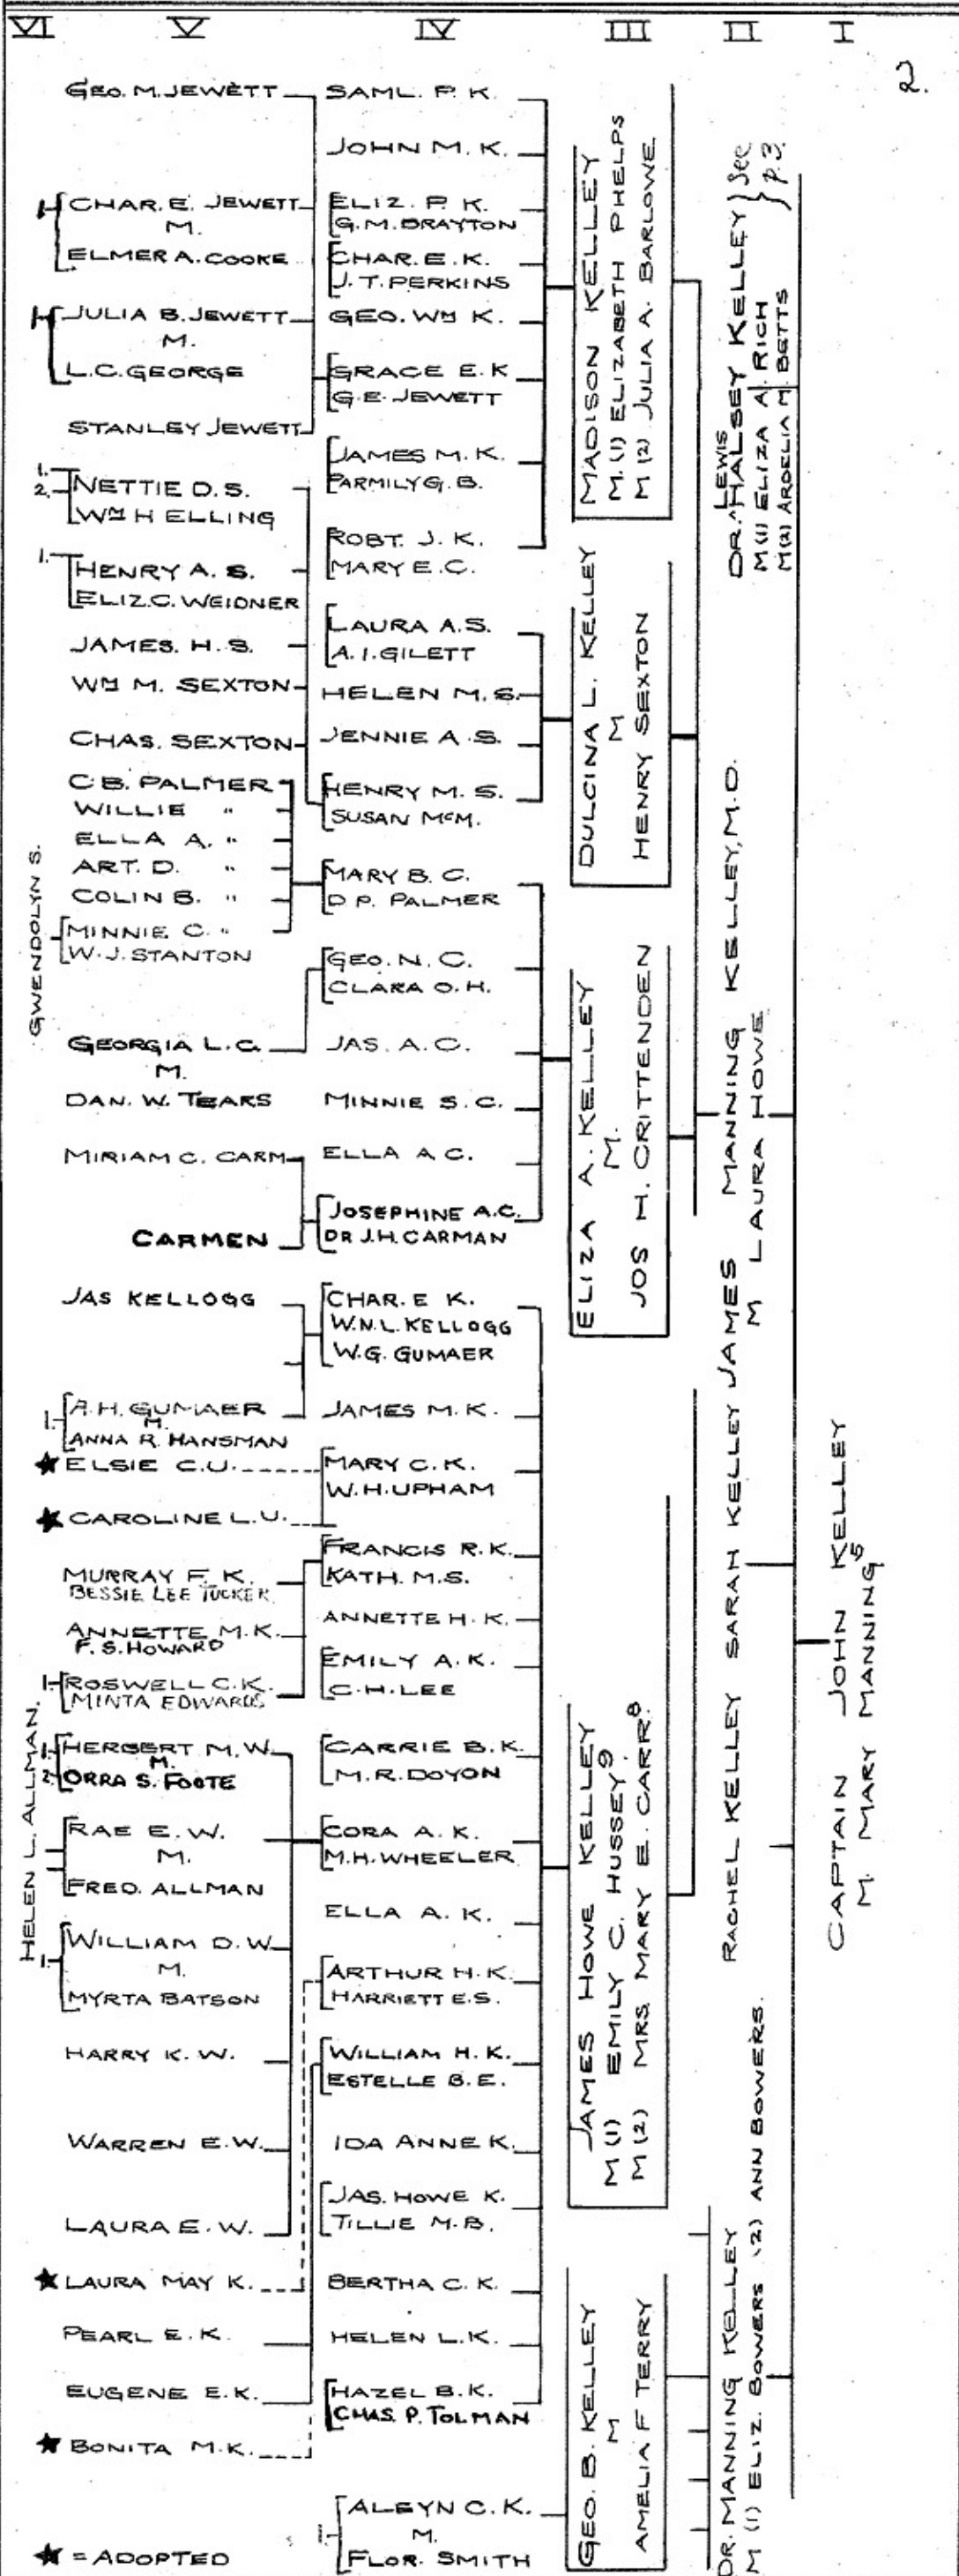 VI V IV III II I
2.
GEO. M. JEWETT
CHAR. E. JEWETT
M.
ELMER A. COOKE
JULIA B. JEWETT
M.
L.C. GEORGE
STANLEY JEWETT
1.
2.
NETTIE D. S.
WM H ELLING
1.
HENRY A. S.
ELIZ. C. WEIDNER
JAMES. H. S.
WM M. SEXTON
CHAS. SEXTON
C.B. PALMER
WILLIE "
ELLA A. "
ART. D. "
COLIN B. "
MINNIE C. "
W. J. STANTON
GWENDOLYN S.
GEORGIA L. C.
M.
DAN. W. TEARS
MIRIAM C. CARM
CARMEN
JAS KELLOGG
1.
A. H. GUMAER
M.
ANNA R. HANSMAN
★ ELSIE C. U.
★ CAROLINE L. U.
MURRAY F. K.
BESSIE LEE TUCKER
ANNETTE M. K.
F. S. HOWARD
1
ROSWELL C. K.
MINTA EDWARDS
1.
HERBERT M. W.
M.
2.
ORRA S. FOOTE
RAE E. W.
M.
FRED. ALLMAN
HELEN L. ALLMAN.
1.
WILLIAM D. W
M.
MYRTA BATSON
HARRY K. W.
WARREN E. W.
LAURA E. W.
★ LAURA MAY K.
PEARL E. K.
EUGENE E. K.
★ BONITA M. K.
★ = ADOPTED
SAML. P. K.
JOHN M. K.
ELIZ. P. K.
G. M. DRAYTON
CHAR. E. K.
J. T. PERKINS
GEO. WM K.
GRACE E. K
G. E. JEWETT
JAMES M. K.
PARMILY G. B.
ROBT. J. K.
MARY E. C.
LAURA A. S.
A. I. GILETT
HELEN M. S.
JENNIE A. S.
HENRY M. S.
SUSAN McM.
MARY B. C.
D P. PALMER
GEO. N. C.
CLARA O. H.
JAS. A. C.
MINNIE S. C.
ELLA A C.
JOSEPHINE A.C.
DR J.H. CARMAN
CHAR. E K.
W.N.L. KELLOGG
W.G. GUMAER
JAMES M. K.
MARY C. K.
W. H. UPHAM
FRANCIS R. K.
KATH. M. S.
ANNETTE H. K.
EMILY A. K.
C. H. LEE
CARRIE B. K.
M. R. DOYON
CORA A. K.
M.H. WHEELER
ELLA A. K.
ARTHUR H. K.
HARRIETT E. S.
WILLIAM H. K.
ESTELLE B. E.
IDA ANNE K.
JAS. HOWE K.
TILLIE M. B.
BERTHA C. K.
HELEN L. K.
HAZEL B. K.
CHAS. P. TOLMAN
ALEYN C. K.
M.
FLOR. SMITH
MADISON KELLEY
M. (1) ELIZABETH PHELPS
M (2) JULIA A. BARLOWE
DULCINA L. KELLEY
M
HENRY SEXTON
ELIZA A. KELLEY
M.
JOS H. CRITTENDEN
JAMES HOWE KELLEY
M (1) EMILY C. HUSSEY9
M (2) MRS. MARY E. CARR.8
GEO. B. KELLEY
M
AMELIA F TERRY
LEWIS
DR. ^ HALSEY KELLEY } See
M (1) ELIZA A. RICH } p. 3.
M (2) ARDELIA M. BETTS
JAMES MANNING KELLEY, M.D.
M LAURA HOWE
SARAH KELLEY
RACHEL KELLEY
DR. MANNING KELLEY
M (1) ELIZ. BOWERS (2) ANN BOWERS.
CAPTAIN JOHN KELLEY
M. MARY MANNING5